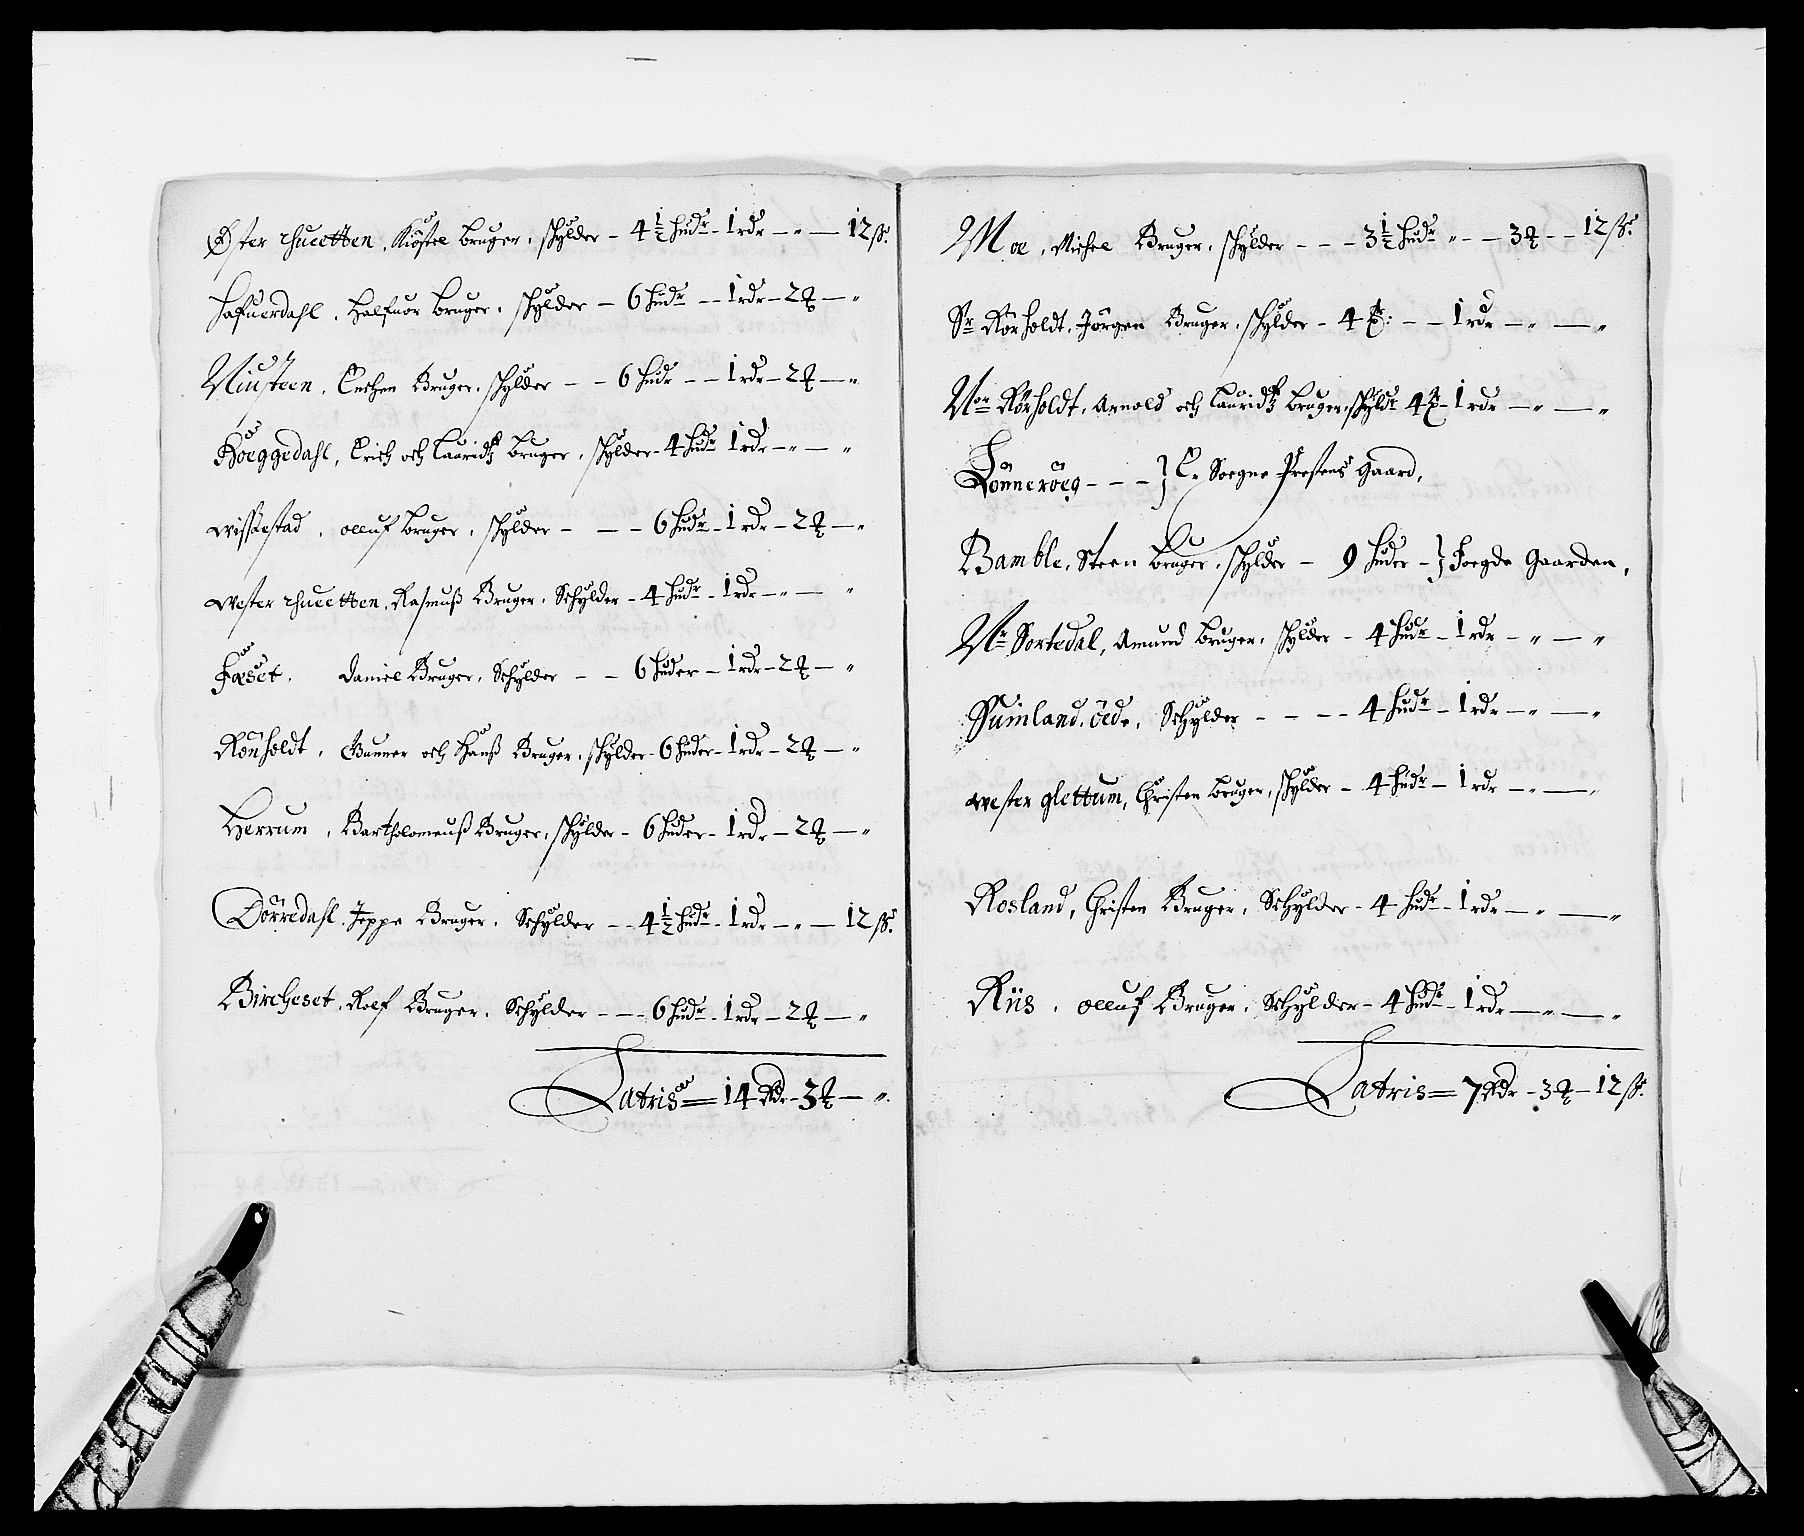 Øster rhueetten, Kiøstel bruger, schylder - 4½ hudr - 1 rdr - " - 12 ß.
Hafuerdahl, Halfuor bruger, schylder - 6 hudr - 1 rdr - 2 ꝗ - "
Niusteen, Enchen Bruger, schylder - - 6 hudr - - 1 rdr - 2 ꝗ - "
Höeggedahl, Erich och Lauridtz bruger, schylder - 4 hudr 1 rdr - " - "
Wissestad, olluf bruger, schylder - - - 6 hudr - 1 rdr - 2 ꝗ - "
Wester rhueetten, Rasmuß Bruger, Schylder - 4 hudr - 1 rdr - " - "
Foeset, daniel Bruger, Schylder - - 6 huder - 1 rdr - 2 ꝗ - "
Rönholdt, Gunner och Hanß Bruger, schylder - 6 huder - 1 rdr - 2 ꝗ - "
Herrum, Bartholomeuß Bruger, schylder - 6 huder - 1 rdr - 2 ꝗ - "
Dörredahl, Jeppe Bruger, Schylder - - 4½ hudr - 1 rdr - " - 12 ß.
Bircheset, Rolf Bruger, Schylder - - - 6 hudr - 1 rdr - 2 ꝗ - "
Latris = 14 Rdr - 3 ꝗ - "
Moe, Michel Bruger, schylder - - - 3½ hudr " - - 3 ꝗ - - 12 ß.
Sr Rörholdt, Jörgen Bruger, schylder - 4 - - 1 rdr - " - "
Nor Rörholdt, Arnold och Lauridtz bruger, schyldr 4 - 1 rdr - " - "
Lönneröeg - - - } Er Soegne Prestens Gaard,
Bamble, Steen bruger, schylder - 9 huder - } Foegde Gaarden,
Nr Sortedal, Amund bruger, schylder - 4 hudr - 1 rdr - " - "
Suinland, öede, Schylder - - - - 4 hudr - 1 rdr - " - "
Wester glettum, Christen bruger, schylder - 4 hudr - 1 rdr - " - "
Rosland, Christen Bruger, Schylder - 4 hudr - 1 rdr - " - "
Riis, olluf Bruger, Schylder - 4 hudr - 1 rdr - " - "
Latris = 7 Rdr - 3 ꝗ - 12 ß.